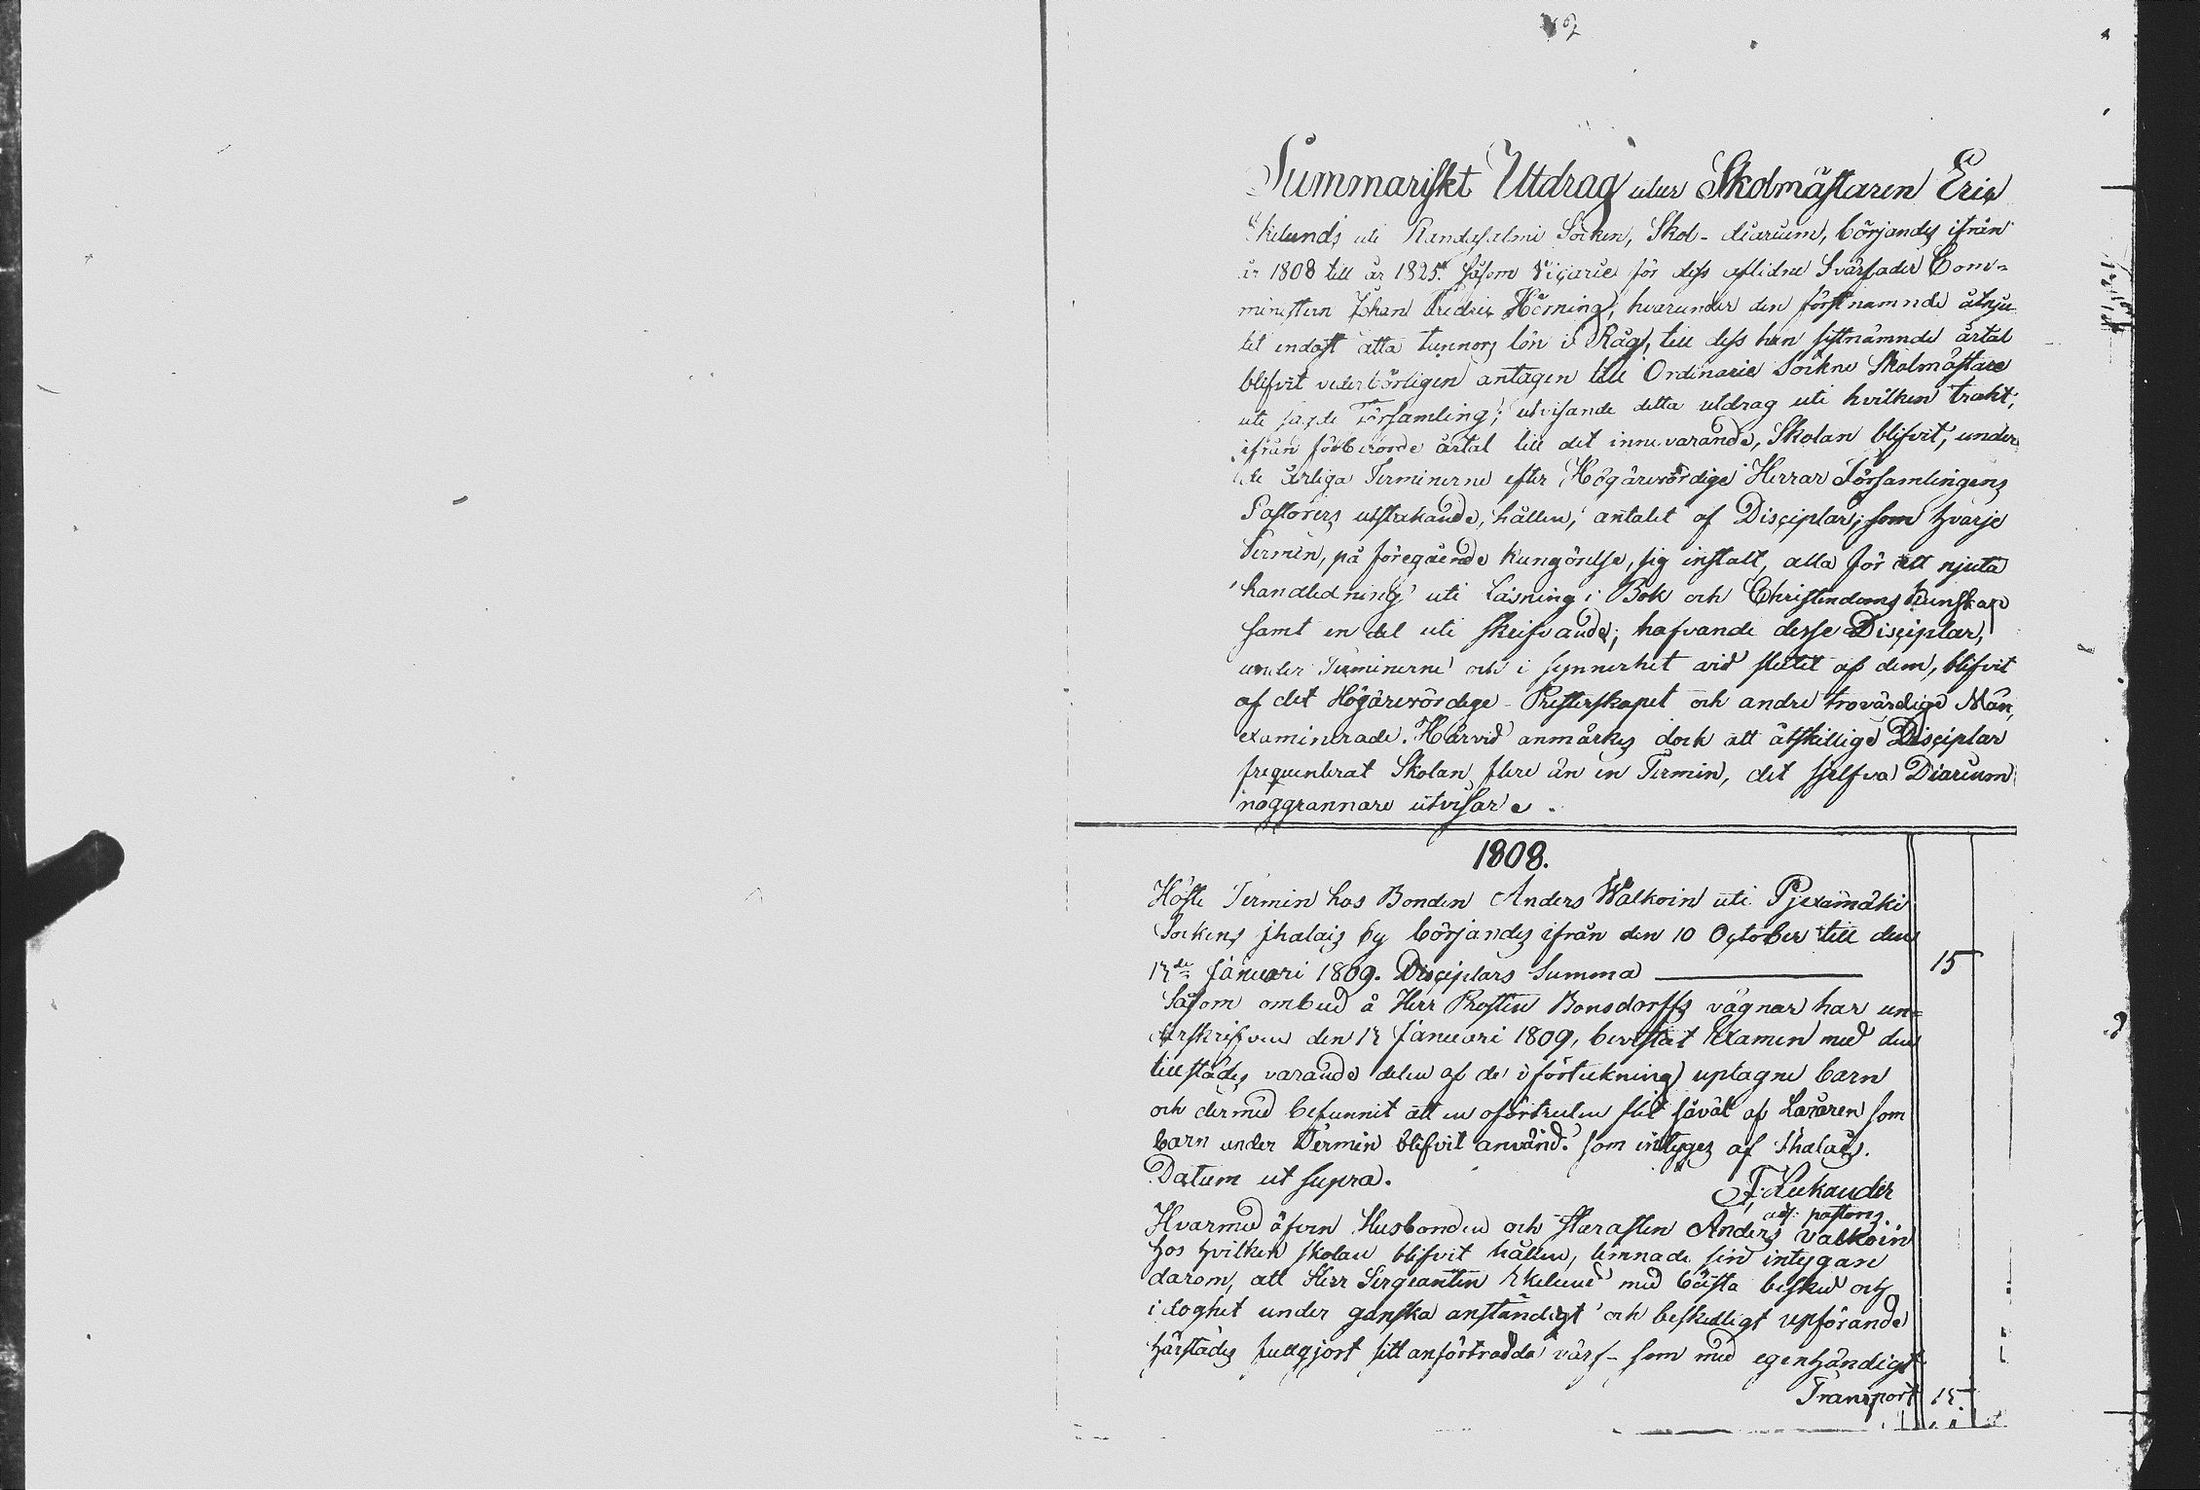 Summariskt Utdrag utur Skolmästaren Eric
Ekelunds uti Randasalmi Socken, Skol-diarium, börjandes ifrån
år 1808 till år 1825. såsom Vicarie för dess aflidne Svärfader Com-
ministern Johan Fredric Hörning, hvarunder den förstnämnde åtnju-
tit endast åtta tunnors lön i Råg, till dess han sistnämnde årtal
blifvit vederbörligen antagen till Ordinarie Sockne Skolmästare
uti sagde Församling; utvisande detta utdrag uti hvilken trakt,
ifrån förberörde årtal till det innevarande, Skolan blifvit, under
de årliga Terminerne efter Högärevördige Herrar Församlingens
Pastorers utstakande, hållen, antalet af Disciplar, som hvarje
Termin, på föregående kungörelse, sig instält, alla för att njuta
handledning uti läsning i Bok och Christendoms kunskap
samt en del uti skrifvande; hafvande desse Disciplar,
under Terminerne och i synnerhet vid slutet af dem, blifvit
af det Högärevördige Presterskapet och andre trovärdige Män,
examinerade. Härvid anmärkes dock att åtskillige Disciplar
frequenterat Skolan flere än en Termin, det sjelfva Diarium
noggrannare utvisar.
1808.
Höste Termin hos Bonden Anders Walkoin uti Pjexämäki
Sockens Jhalais by börjandes ifrån den 10 October till den
17de Januari 1809. Disciplars Summa 15
Såsom ombud å Herr Prosten Bonsdorffs vägnar har un-
derskrifven den 17 Januari 1809, bevistat Examen med den
tillstädes varande delen af de i förteckning uptagne barn
och dermed befunnit att en oförtruten flit såväl af Läraren som
barn under Termin blifvit använd. som intyges af Jhalais.
Datum ut supra.
F. Leukander
adj: pastoris.
Hvarmed äfven Husbonden och Anders Valkoin
hos hvilken skolan blifvit hållen, lemnade sin intygan
darom, att Herr Sergeanten Ekelund med bästa besked och
idoghet under ganska anständigt och beskedligt upförande
härstädes fullgjort sitt anförtrodda värf - som med egenhändigt
Transport 15.